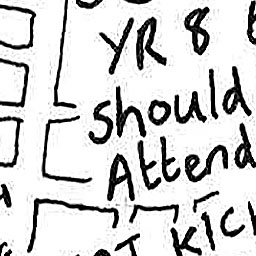 YR 8
Should
Attend
KICK